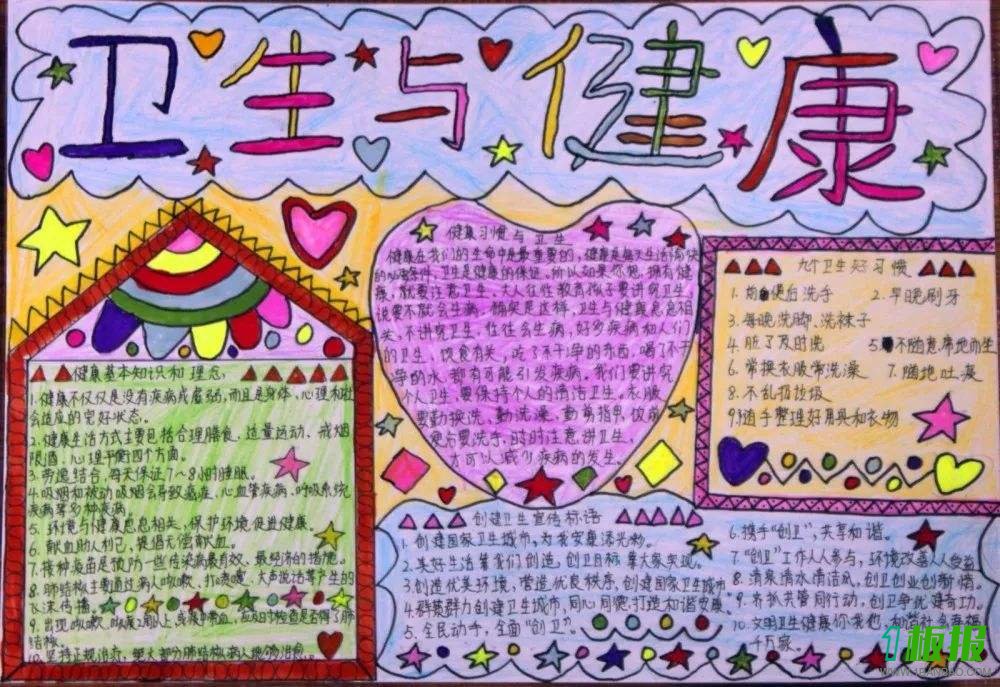 卫生与健康
健康基本知识和理念
1.健康不仅仅是没有疾病或虚弱,而且是身体、心理和社
会适应的完好状态。
2.健康生活方式主要包括合理膳食、适量运动、戒烟
限酒、心理平衡四个方面。
3.劳逸结合,每天保证7~8小时睡眠。
4.吸烟和被动吸烟会导致癌症、心血管疾病、呼吸系统
疾病等多种疾病。
5.环境与健康息息相关,保护环境促进健康。
6.献血助人利己,提倡无偿献血。
7.接种疫苗是预防一些传染病最有效、最经济的措施。
8.肺结核主要通过病人咳嗽、打喷嚏、大声说话等产生的
飞沫传播。
9.出现咳嗽、咳痰2周以上,或痰中带血,应及时检查是否得了肺
结核。
10.坚持正规治疗,绝大部分肺结核病人能够治愈。
健康习惯与卫生
健康在我们的生命中是最重要的,健康是每天生活愉快
的必要条件,卫生是健康的保证,所以如果你想拥有健
康,就要注意卫生,大人往往教育孩子要讲究卫生,
说要不就会生病,确实是这样,卫生与健康息息相
关,不讲究卫生,往往会生病,好多疾病和人们
的卫生、饮食有关,吃了不干净的东西,喝了不干
净的水,都有可能引发疾病。我们要讲究
个人卫生,要保持个人的清洁卫生。衣服
要勤换洗,勤洗澡,勤剪指甲,饭前
便后要洗手,时时注意讲卫生,
才可以减少疾病的发生。
九个卫生好习惯
1.前便后洗手 2.早晚刷牙
3.每晚洗脚、洗袜子
4.脏了及时洗 5.不随意席地而坐
6.常换衣服常洗澡 7.随地吐痰
8.不乱扔垃圾
9.随手整理好用具和衣物
创建卫生宣传标语
1.创建国家卫生城市,为我安康添光物。
2.美好生活靠我们创造,创卫目标靠大家实现。
3.创造优美环境,营造优良秩序,创建国家卫生城市
4.群策群力创建卫生城市,同心同德,打造和谐安康
5.全民动手,全面“创卫”。
6.携手“创卫”,共享和谐。
7.“创卫”工作人人参与,环境改善人人受益
8.清泉清水清洁城,创卫创业创新情。
9.齐抓共管同行动,创卫争优建奇功。
10.文明卫生健康你我他,和谐社会幸福
千万家。
1板报
WWW.1BANBAO.COM